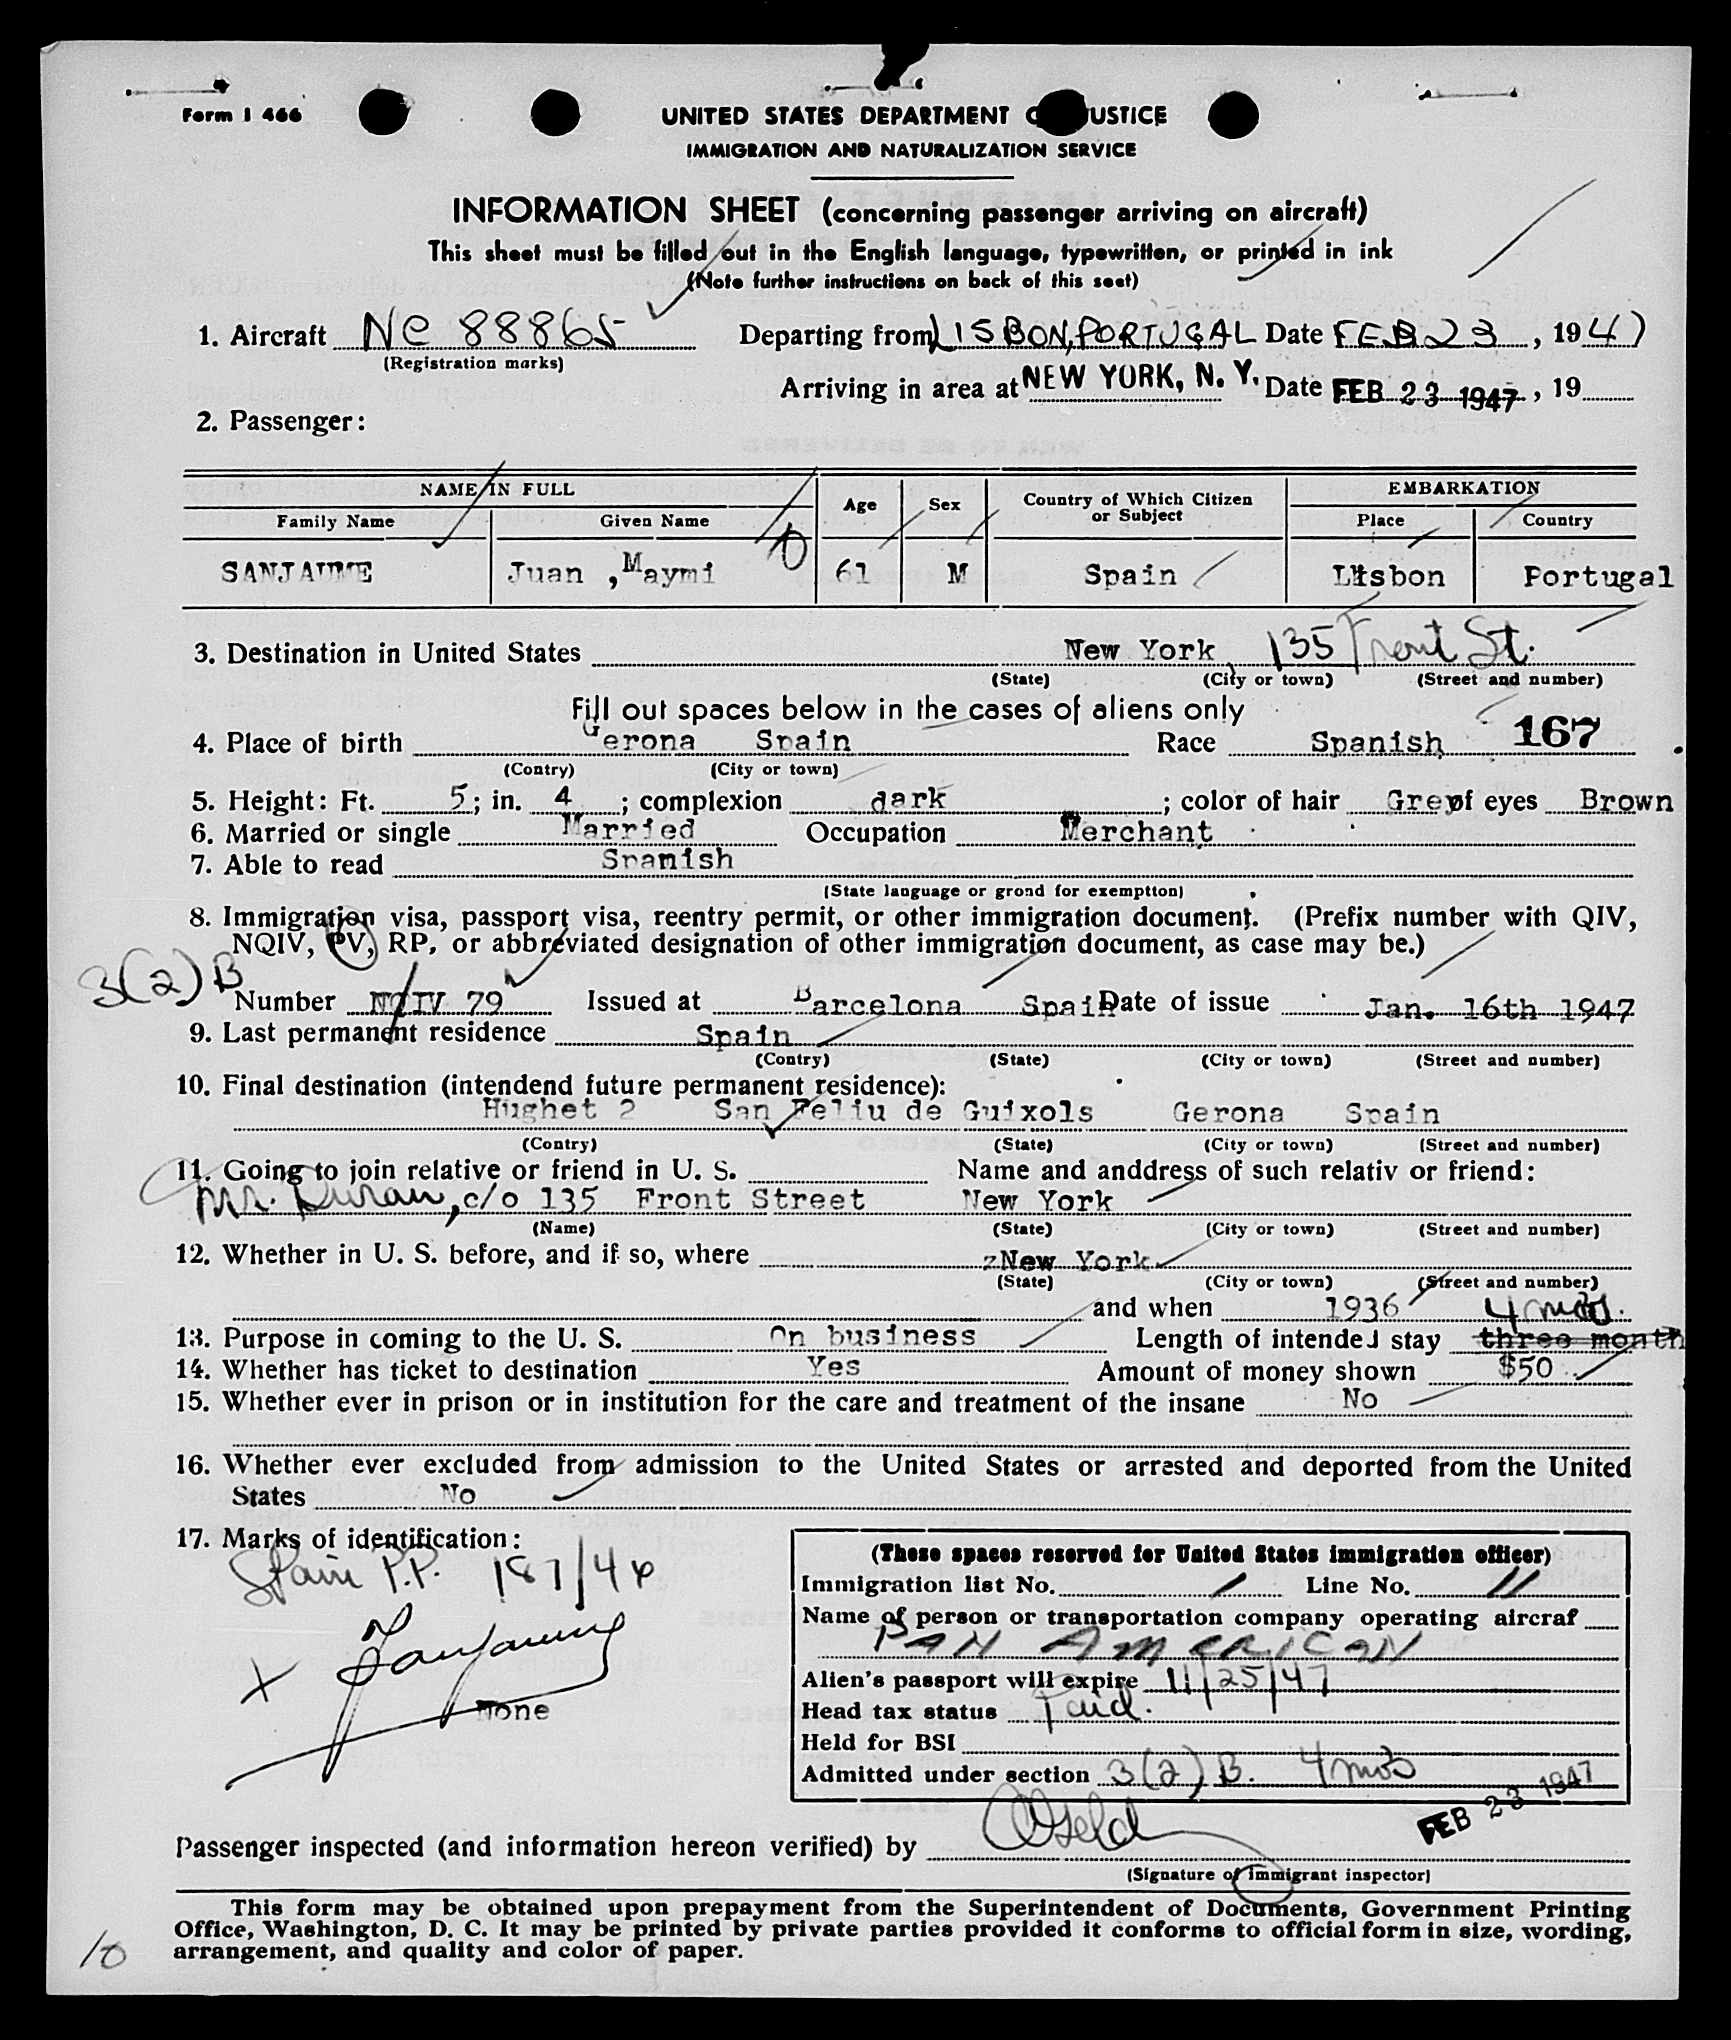 Form I 466
UNITED STATES DEPARTMENT O USTICE
IMMIGRATION AND NATURALIZATION SERVICE
INFORMATION SHEET (concerning passenger arriving on aircraft)
This sheet must be filled out in the English language, typewritten, or printed in ink
(Note further instructions on back of this seet)
1. Aircraft NC 88865 Departing from LISBON, PORTUGAL Date FEB 23, 1947
(Registration marks)
Arriving in area at NEW YORK, N. Y. Date FEB 23 1947, 19
2. Passenger:
NAME IN FULL Age Sex Country of Which Citizen or Subject EMBARKATION
Family Name Given Name Place Country
SANJAUME Juan , Maymi 61 M Spain Lisbon Portugal
3. Destination in United States New York, 135 Front St.
(State) (City or town) (Street and number)
Fill out spaces below in the cases of aliens only
4. Place of birth Gerona Spain Race Spanish 167
(Contry) (City or town)
5. Height: Ft. 5; in. 4; complexion dark; color of hair Grey of eyes Brown
6. Married or single Married Occupation Merchant
7. Able to read Spanish
(State language or grond for exemption)
8. Immigration visa, passport visa, reentry permit, or other immigration document. (Prefix number with QIV,
NQIV, PV, RP, or abbreviated designation of other immigration document, as case may be.)
3(2)B
Number NQIV 79 Issued at Barcelona Spain Date of issue Jan. 16th 1947
9. Last permanent residence Spain
(Contry) (State) (City or town) (Street and number)
10. Final destination (intendend future permanent residence):
Hughet 2 San Feliu de Guixols Gerona Spain
(Contry) (State) (City or town) (Street and number)
11. Going to join relative or friend in U. S. Name and anddress of such relativ or friend:
Mr. Duran, c/o 135 Front Street New York
(Name) (State) (City or town) (Street and number)
12. Whether in U. S. before, and if so, where zNew York
(State) (City or town) (Street and number)
and when 1936 4 mos.
13. Purpose in coming to the U. S. On business Length of intended stay three month
14. Whether has ticket to destination Yes Amount of money shown $50
15. Whether ever in prison or in institution for the care and treatment of the insane No
16. Whether ever excluded from admission to the United States or arrested and deported from the United
States No
17. Marks of identification:
Spain P.P. 187/46
X Sanjaume
None
(These spaces reserved for United States immigration officer)
Immigration list No. 1 Line No. 11
Name of person or transportation company operating aircraf
PAN AMERICAN
Alien's passport will expire 11/25/47
Head tax status Paid.
Held for BSI
Admitted under section 3(2)B. 4 mos
FEB 23 1947
Passenger inspected (and information hereon verified) by
(Signature of immigrant inspector)
This form may be obtained upon prepayment from the Superintendent of Documents, Government Printing
Office, Washington, D. C. It may be printed by private parties provided it conforms to official form in size, wording,
arrangement, and quality and color of paper.
10